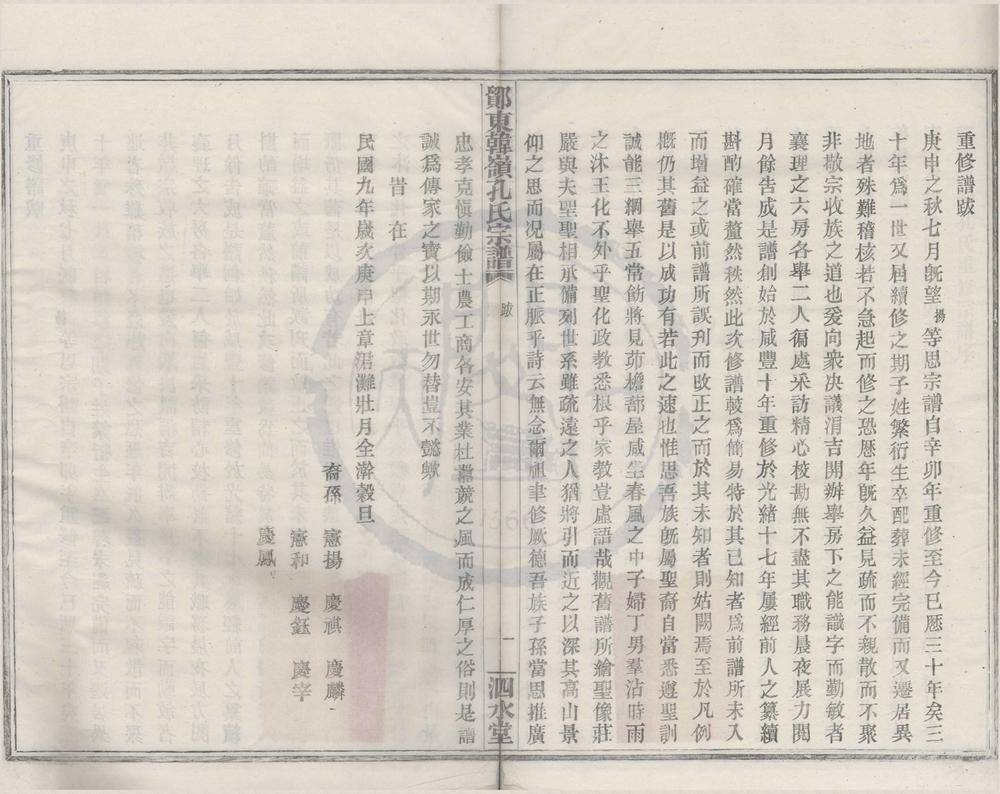 重修譜跋
庚申之秋七月旣望揚等思宗譜自辛卯年重修至今已歷三十年矣三
十年爲一世又屆續修之期子姓繁衍生卒配葬未經完備而又遷居異
地者殊難稽核若不急起而修之恐歷年旣久益見疏而不親散而不聚
非敬宗收族之道也爰向衆決議涓吉開辦舉房下之能識字而勤敏者
襄理之六房各舉二人徧處采訪精心校勘無不盡其職務晨夜展力閱
月餘告成是譜創始於咸豐十年重修於光緒十七年屢經前人之纂續
斟酌確當釐然秩然此次修譜較爲簡易特於其已知者爲前譜所未入
而增益之或前譜所誤刋而改正之而於其未知者則姑闕焉至於凡例
槪仍其舊是以成功有若此之速也惟思吾族旣屬聖裔自當悉遵聖訓
誠能三綱舉五常飭將見茆檐蔀屋咸坐春風之中子婦丁男羣沾時雨
之沐王化不外乎聖化政教悉根乎家教豈虛語哉觀舊譜所繪聖像莊
嚴與夫聖聖相承備列世系雖疏遠之人猶將引而近之以深其高山景
仰之思而况屬在正脈乎詩云無念爾祖聿修厥德吾族子孫當思推廣
鄮東韓嶺孔氏宗譜
跋
一
泗水堂
忠孝克愼勤儉士農工商各安其業杜嚣競之風而成仁厚之俗則是譜
誠爲傳家之寶以期永世勿替豈不懿歟
旹在
民國九年歲次庚申上章涒灘壯月全澣穀旦
裔孫 憲揚 慶祺 慶麟
憲和 慶鈺 慶宰
慶鳳